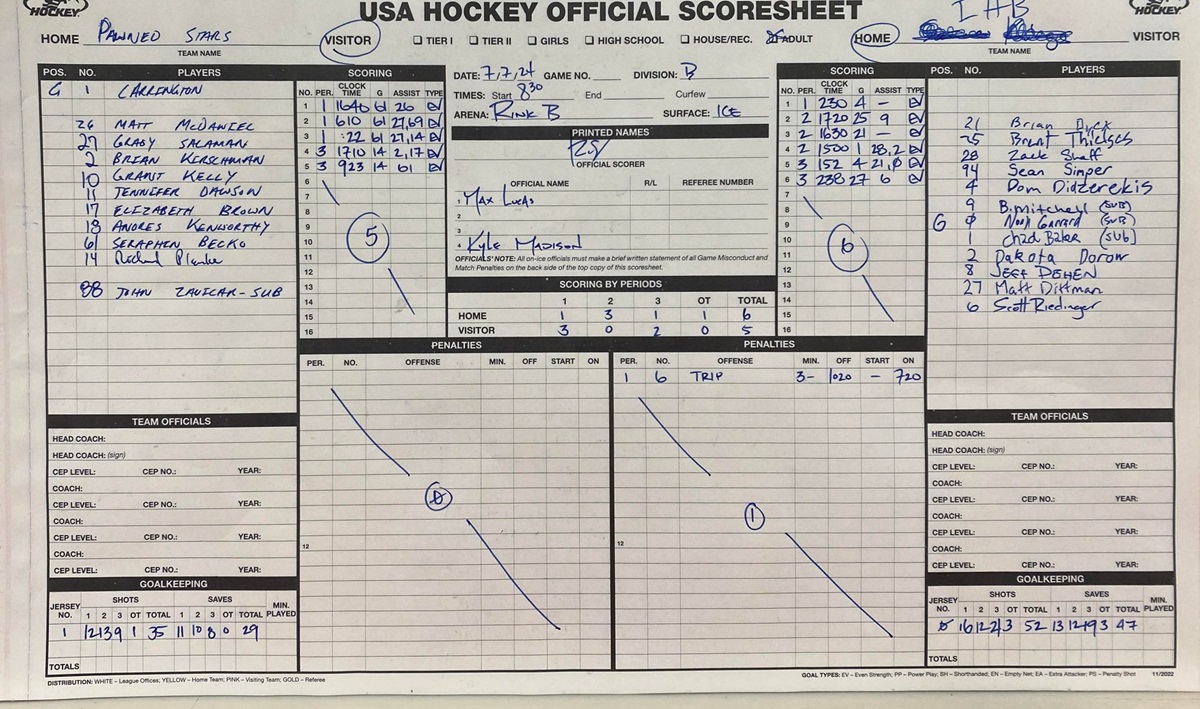 HOCKEY
USA HOCKEY OFFICIAL SCORESHEET
HOCKEY
HOME PAWNED STARS VISITOR
TEAM NAME
TIER I TIER II GIRLS HIGH SCHOOL HOUSE/REC. ADULT
HOME IHB VISITOR
TEAM NAME
POS. NO. PLAYERS
G 1 CARRINGTON
26 MATT McDANIEL
27 GRADY SALAMAN
2 BRIAN KERSCHMAN
10 GRANT KELLY
11 JENNIFER DAWSON
17 ELIZABETH BROWN
18 ANDRES KENWORTHY
61 SERAPHIN BECKO
14 Richard
88 JOHN ZAVICAR-SUB
SCORING
NO. PER. CLOCK TIME G ASSIST TYPE
1 1 1640 61 26 EV
2 1 610 61 27,69 EV
3 1 :22 61 27,14 EV
4 3 1710 14 2,17 EV
5 3 923 14 61 EV
6
7
8
9
10
11
12
13
14
15
16
5
DATE: 7/7/24 GAME NO. DIVISION: B
TIMES: Start 8 30 End Curfew
ARENA: RINK B SURFACE: ICE
PRINTED NAMES
OFFICIAL SCORER
OFFICIAL NAME R/L REFEREE NUMBER
1 MAX LUCAS
2
3
4 KYLE MADISON
OFFICIALS' NOTE: All on-ice officials must make a brief written statement of all Game Misconduct and
Match Penalties on the back side of the top copy of this scoresheet.
SCORING BY PERIODS
1 2 3 OT TOTAL
HOME 1 3 1 1 6
VISITOR 3 0 2 0 5
SCORING
NO. PER. CLOCK TIME G ASSIST TYPE
1 1 230 4 - EV
2 2 1720 25 9 EV
3 2 1630 21 - EV
4 2 1500 1 28,2 EV
5 3 152 4 21,0 EV
6 3 238 27 6 EV
7
8
9
10
11
12
13
14
15
16
6
POS. NO. PLAYERS
21 Brian
25 Brent
28 Zack
94 Sean Simper
4 Dom Didzerekis
9 B.Mitchell (SUB)
G 0 Noah Garrard (SUB)
1 Chad Baker (SUB)
2 Dakota Dorow
8 JEFF DEHEN
27 Matt Dittman
6 Scott Riedinger
PENALTIES
PER. NO. OFFENSE MIN. OFF START ON
12
0
PENALTIES
PER. NO. OFFENSE MIN. OFF START ON
1 6 TRIP 3- 1020 - 720
12
1
TEAM OFFICIALS
HEAD COACH:
HEAD COACH: (sign)
CEP LEVEL: CEP NO.: YEAR:
COACH:
CEP LEVEL: CEP NO.: YEAR:
COACH:
CEP LEVEL: CEP NO.: YEAR:
COACH:
CEP LEVEL: CEP NO.: YEAR:
GOALKEEPING
JERSEY NO. SHOTS 1 2 3 OT TOTAL SAVES 1 2 3 OT TOTAL MIN. PLAYED
1 12 13 9 1 35 11 10 8 0 29
TOTALS
TEAM OFFICIALS
HEAD COACH:
HEAD COACH: (sign)
CEP LEVEL: CEP NO.: YEAR:
COACH:
CEP LEVEL: CEP NO.: YEAR:
COACH:
CEP LEVEL: CEP NO.: YEAR:
COACH:
CEP LEVEL: CEP NO.: YEAR:
GOALKEEPING
JERSEY NO. SHOTS 1 2 3 OT TOTAL SAVES 1 2 3 OT TOTAL MIN. PLAYED
0 16 12 21 3 52 13 12 19 3 47
TOTALS
DISTRIBUTION: WHITE – League Offices; YELLOW – Home Team; PINK – Visiting Team; GOLD – Referee
GOAL TYPES: EV – Even Strength; PP – Power Play; SH – Shorthanded; EN – Empty Net; EA – Extra Attacker; PS – Penalty Shot 11/2022